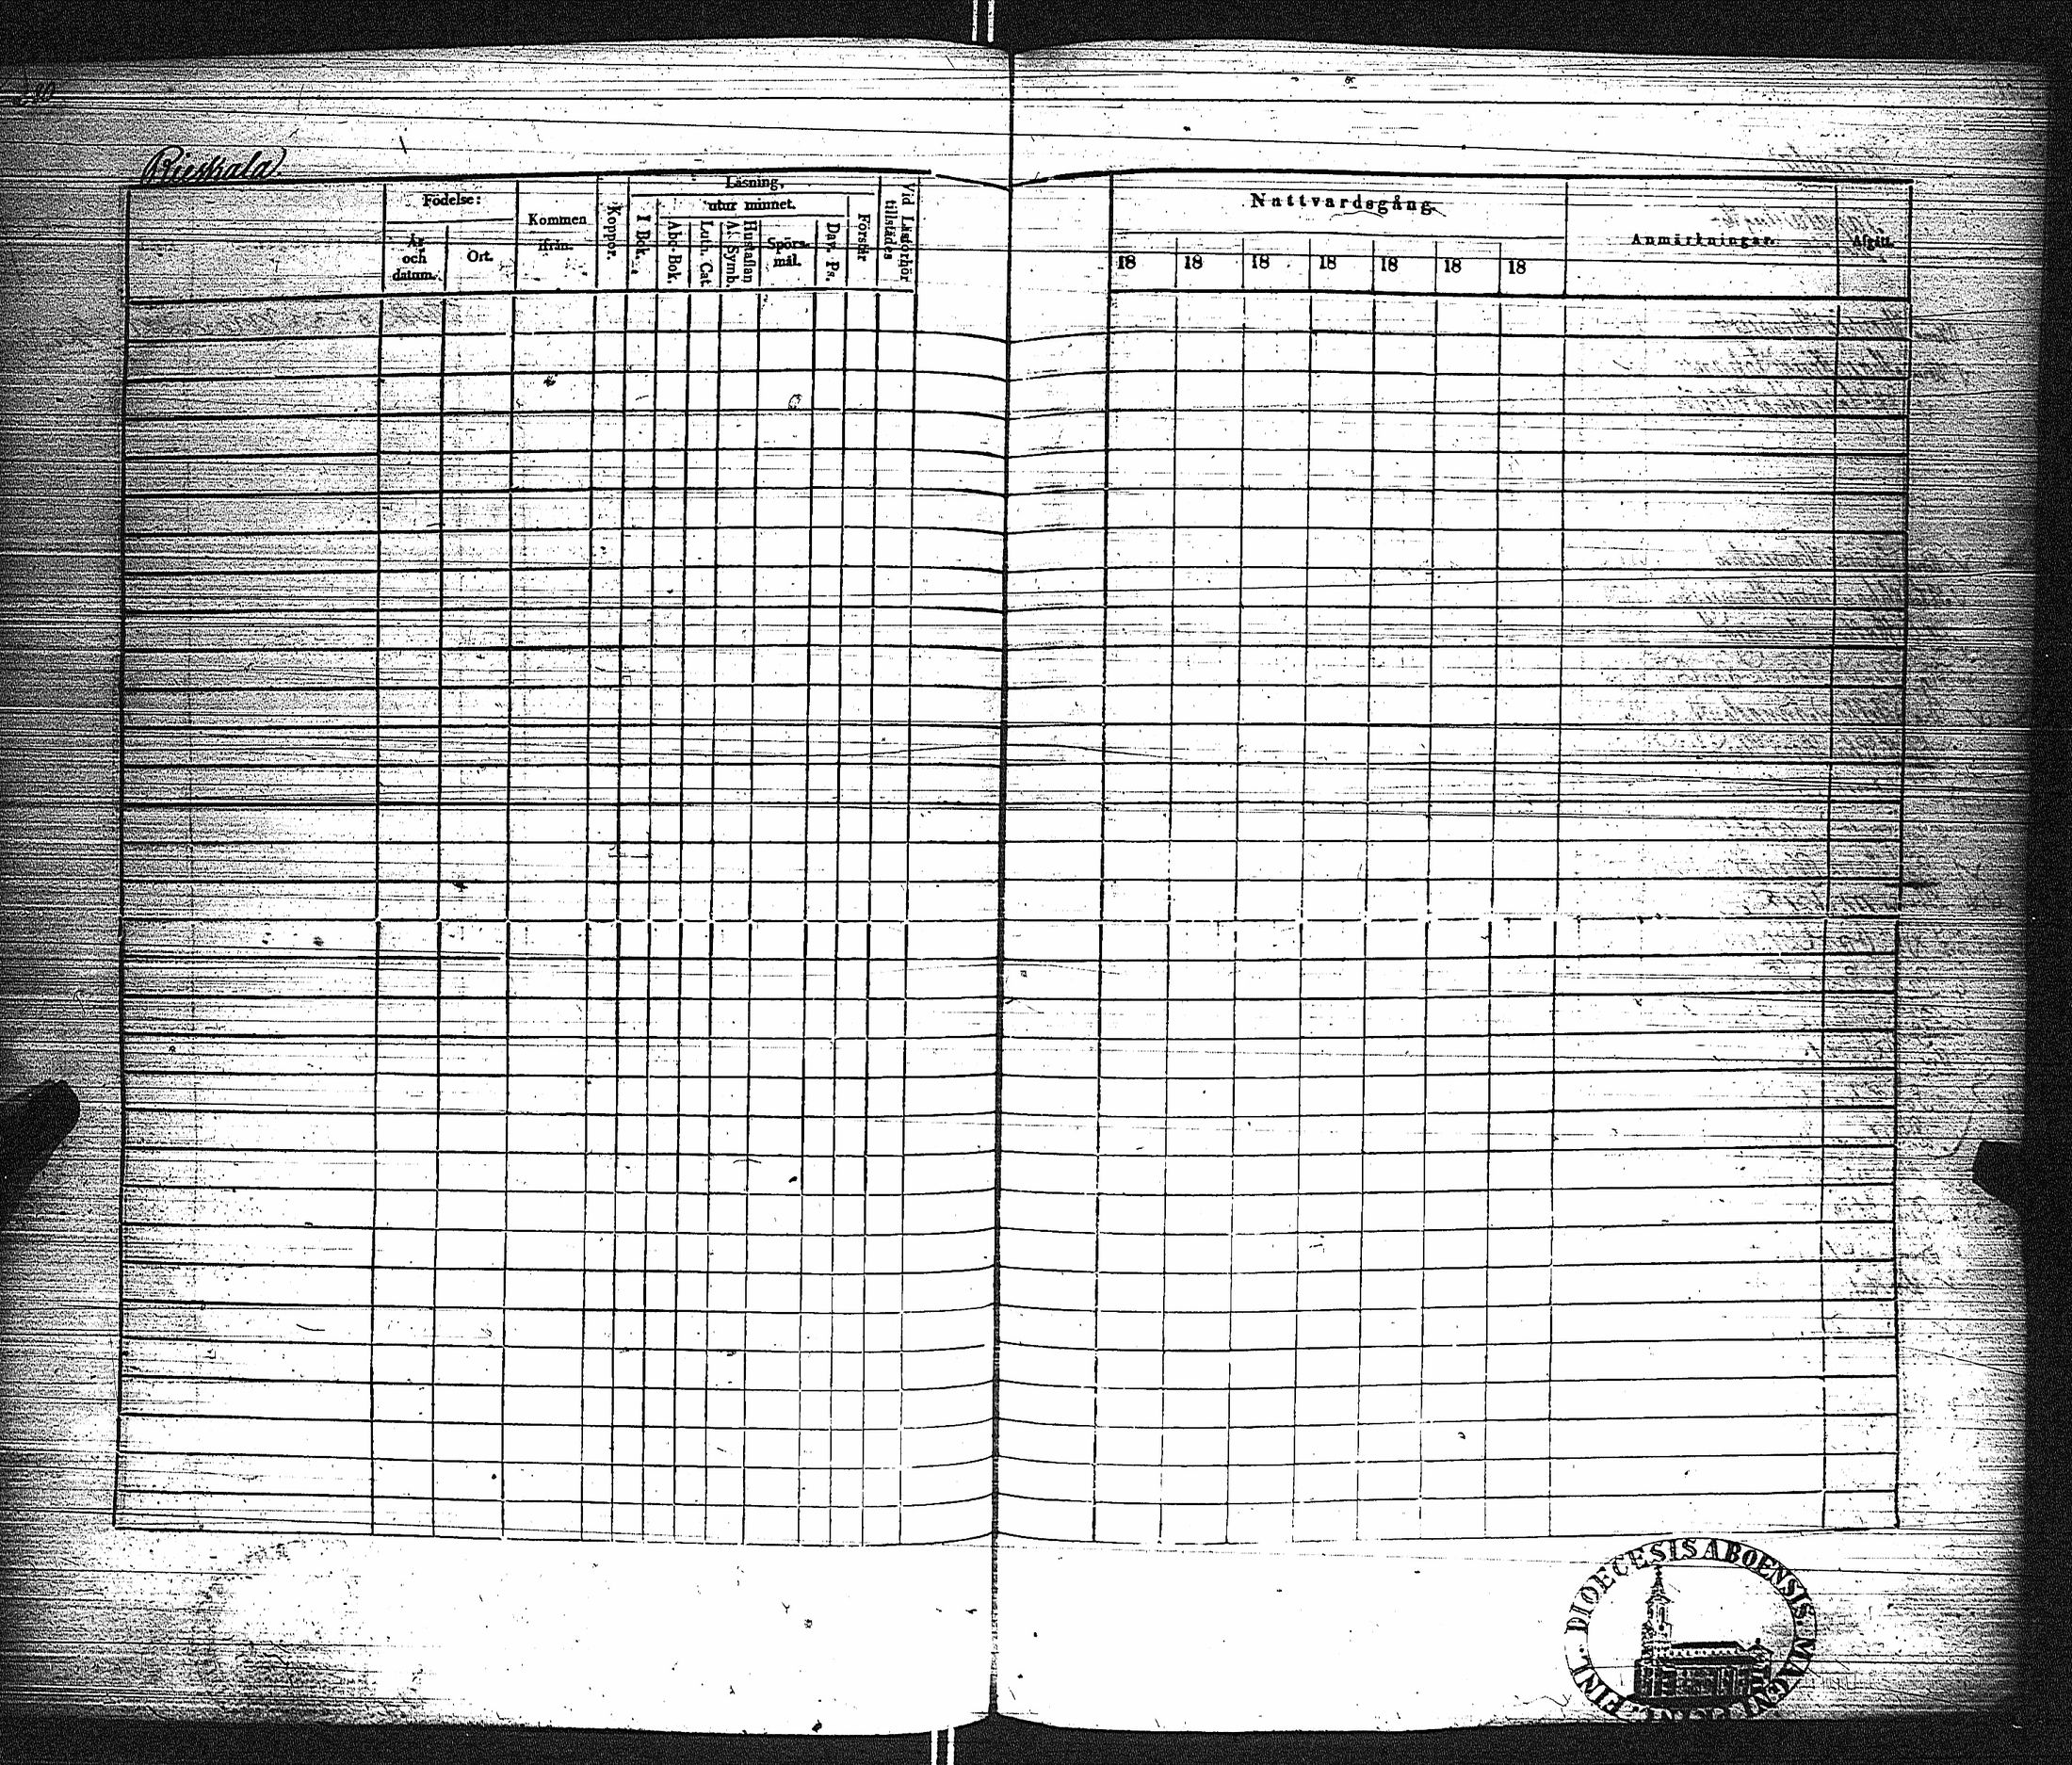 Rieskala
Födelse:
År och datum.
Ort.
Kommen ifrån.
Koppor.
Läsning,
utur minnet.
I Bok.
Abc-Bok.
Luth. Cat
A: Symb.
Hustaflan
Spörsmål.
Dav. Ps.
Förstår
Vid Läsförhör tillstädes
Nattvardsgång.
18 18 18 18 18 18 18
Anmärkningar.
Afgått.
DIOECESIS ABOENSIS